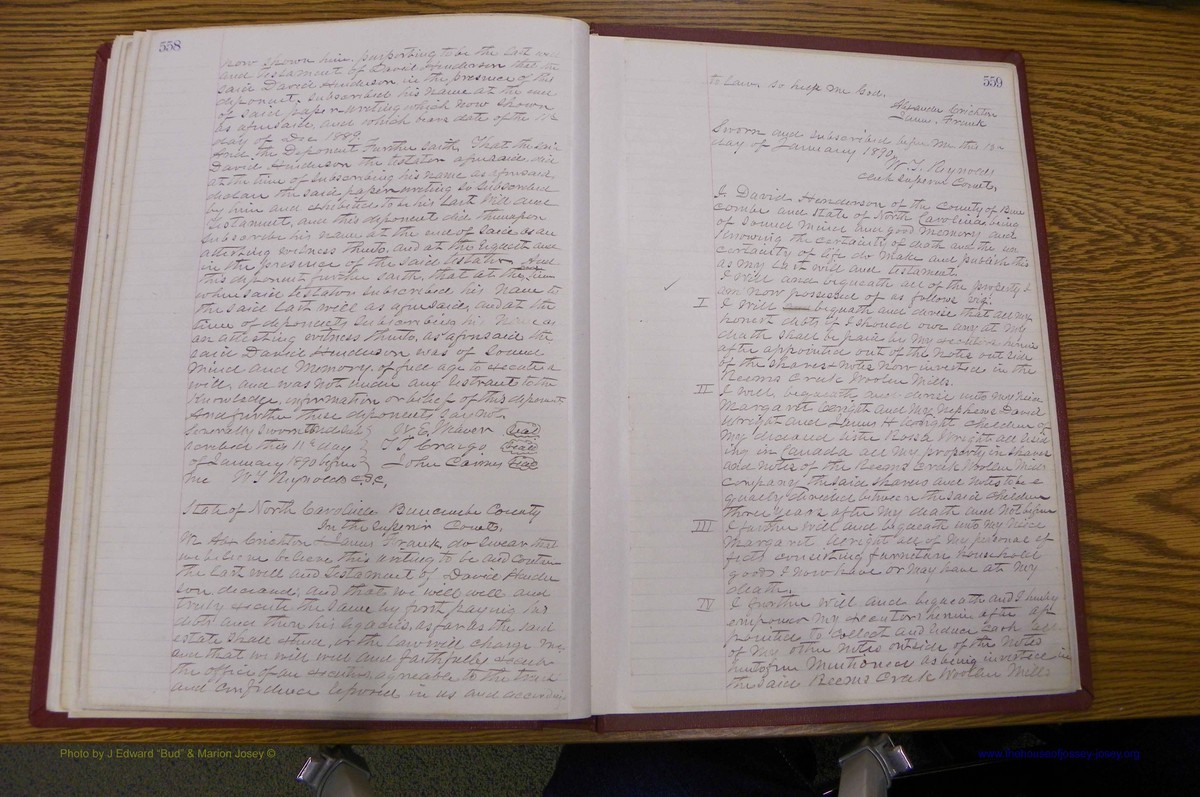 558
now shown him, purporting to be the last will
and testament of David Henderson that the
said David Henderson in the presence of this
deponent, subscribed his name at the end
of said paper writing which now shown
as aforsaid, and which bears date of the 11th
day of Dec 1889.
And the Deponent Further saith, That the said
David Henderson the testator aforsaid, did
at the time of subscribing his name as aforsaid
declare the said paper writing so subscribed
by him and exhibited to be his Last Will and
Testament, and this deponent did thereupon
subscribe his name at the end of said as an
attesting witness thereto, and at the request and
in the presence of the said testator. And
this deponent further saith, that at the time
when said testator subscribed his name to
the said last will as aforsaid, and at the
time of deponents subscribing his name as
an attesting witness thereto, as aforsaid the
said David Henderson was of sound
mind and memory, of full age to execute a
will, and was not under any restraint to the
knowledge, information or belief of this deponent
And further these deponents say not.
Severally Sworn to and sub W. E. Weaver Seal
scribed this 11th day T J Crargo Seal
of January 1890 before John Cairnes Seal
me W T Reynolds C.S.C.
State of North Carolina Buncombe County
In the Superior Court,
We Alex Crichton & James Frank do swear that
we believe believe this writing to be and contain
the last will and Testament of David Hender
son, deceased; and that we well will and
truly execute the same by first paying his
debts and then his legacies, as far as the said
estate shall extend, or the law will charge me,
and that we will well and faithfully execute
the office of an executor, agreable to the trust
and confidence reposed in us and according
559
to law, so help me God.
Alexander Crichton
James Frank
Sworn and subscribed before me this 13th
day of January 1890,
W. T. Reynolds
Clerk Superior Court,
I David Henderson of the County of Bun
combe and State of North Carolina being
of Sound Mind and good Memory, and
knowing the certainty of death and the un
certainty of life do make and publish this
as my last will and testament
I will and bequeath all of the property I
am now possessed of as follows viz:
I I will and bequath and devise that all my
honest debts if I should owe any at my
death shall be paid by my executors herein
after appointed out of the notes out side
of the shares & notes now invested in the
Reems Creek Woolen Mills.
II I will, bequeath and devise unto my Neice
Margaret Wright and My Nephews David
Wright and James H Wright children of
my deceased sister Rossa Wright all resid
ing in Canada all my property in shares
and notes of the Reems Creek Woolen Mills
Company, the said shares and notes to be e
qually divided between the said children
three years after my death and not before
III I further will and bequeath unto my Neice
Margaret Wright all of my personal ef
fects consisting furniture household
goods I now have or may have at my
death.
IV I further will and bequeath and I hereby
empower my executors herein after ap
pointed to collect and
of my other notes outside of the notes
heretofore mentioned as being invested in
the said Reems Creek Woolen Mills
Photo by J Edward "Bud" & Marion Josey ©
www.thehouseofjossey-josey.org